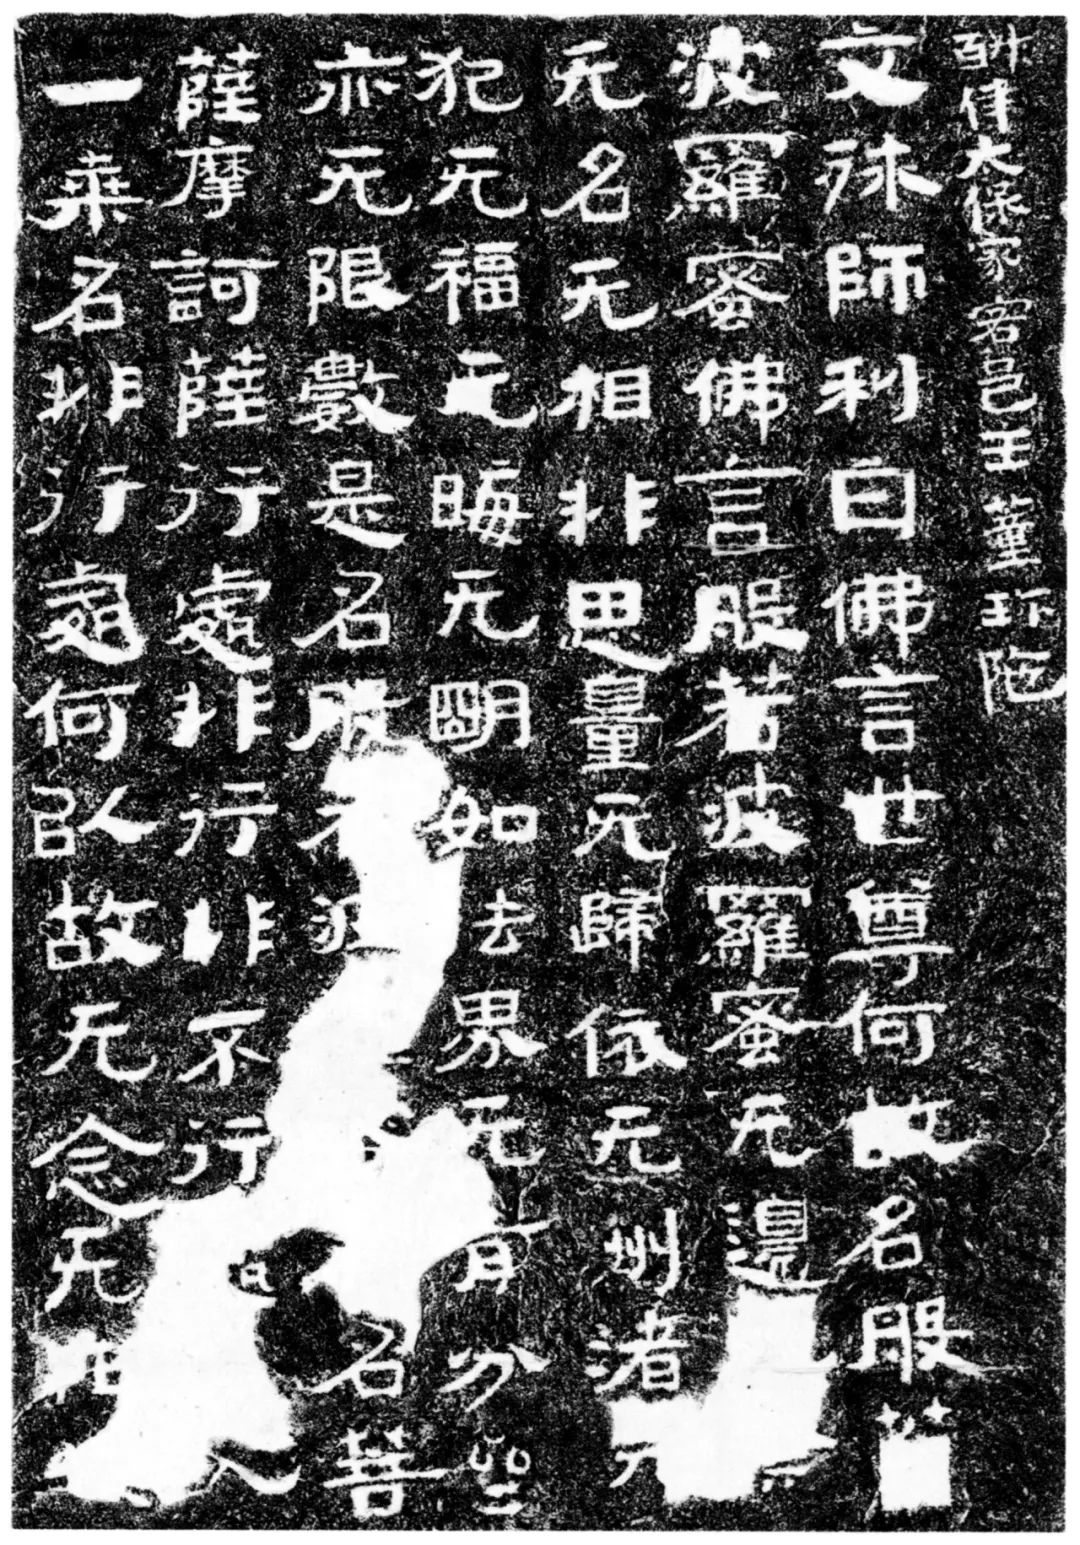 斛律太保家客邑主董珍陀
文殊師利白佛言世尊何故名般
波羅蜜佛言般若波羅蜜无邊
无名无相非思量无歸依无洲渚
犯无福无晦无明如法界无有分
亦无限數是名般若波 名菩
薩摩訶薩行處非行非不行
一乘名非行處何以故无念无